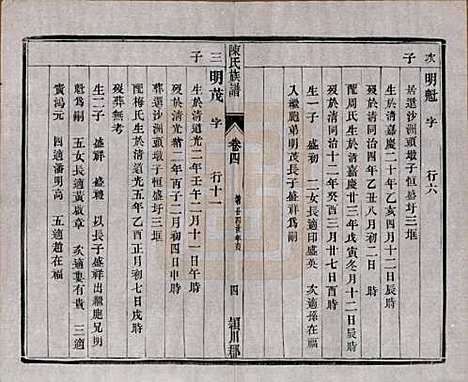 次子
明魁 字 行六
居遷沙洲頭墩子恒盛圩三埕
生於清嘉慶二十年乙亥四月十二日辰時
歿於清同治四年乙丑八月初二日時
配周氏生於清嘉慶廿三年戊寅冬月十二日辰時
歿於清同治十三年二月十七日酉時
生一子 盛初 二女長適印盛英 次適孫在
入繼胞弟明茂長子盛祥爲嗣
陳氏族譜
卷四
四
潁川郡
三子
明茂 字 行十一
生於清道光二年壬午十二月十一日午時
歿於清光緒二年丙子二月初四日申時
葬遷沙洲頭墩子恒盛圩三埕
配梅氏生於清道光五年乙酉正月初七日戌時
歿葬無考
生二子 盛祥 盛財 以長子盛祥出繼胞兄明
魁爲嗣 五女長適黃啟章 次適婁有貴 三適
賁澙元 四適潘明高 五適趙在福